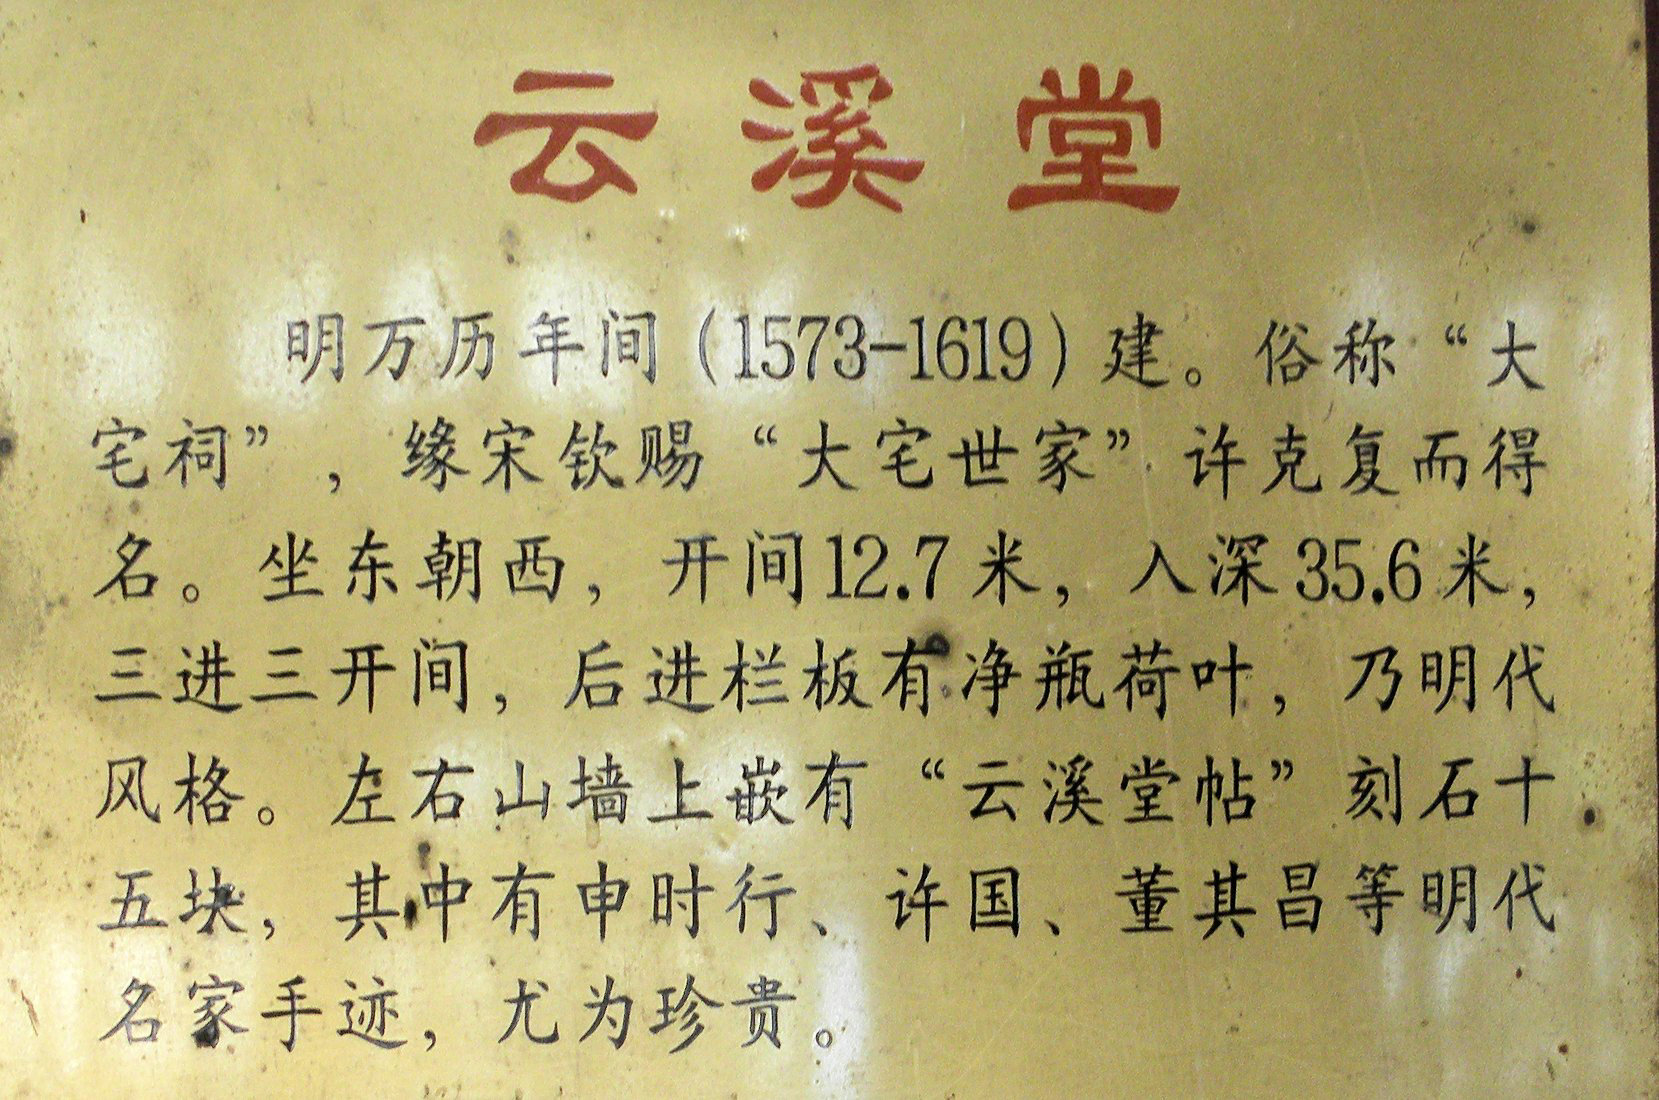 云溪堂
明万历年间(1573-1619)建。俗称“大
宅祠”,缘宋钦赐“大宅世家”许克复而得
名。坐东朝西,开间12.7米,入深35.6米,
三进三开间,后进栏板有净瓶荷叶,乃明代
风格。左右山墙上嵌有“云溪堂帖”刻石十
五块,其中有申时行、许国、董其昌等明代
名家手迹,尤为珍贵。